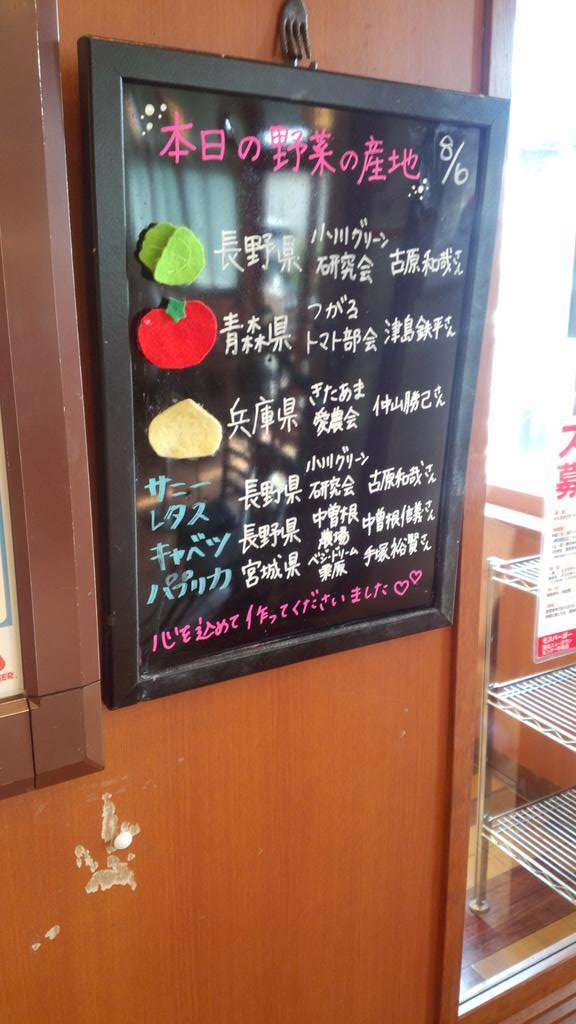 本日の野菜の産地 8/6
長野県 小川グリーン研究会 古原和哉さん
青森県 つがるトマト部会 津島鉄平さん
兵庫県 きたあま愛農会 仲山勝己さん
サニーレタス 長野県 小川グリーン研究会 古原和哉さん
キャベツ 長野県 中曽根農場 中曽根信義さん
パプリカ 宮城県 ベジ・ドリーム栗原 手塚裕賢さん
心を込めて作ってくださいました♡♡
モスバーガー